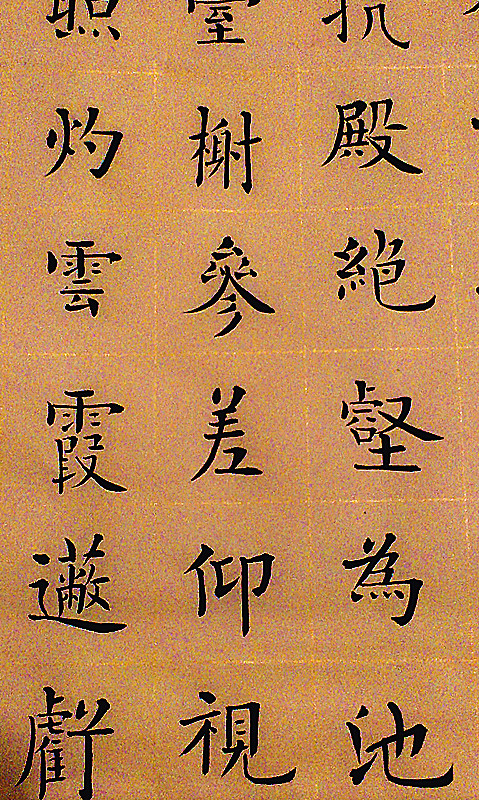 抗殿絶壑為池
臺榭參差仰視
照灼雲霞蔽虧